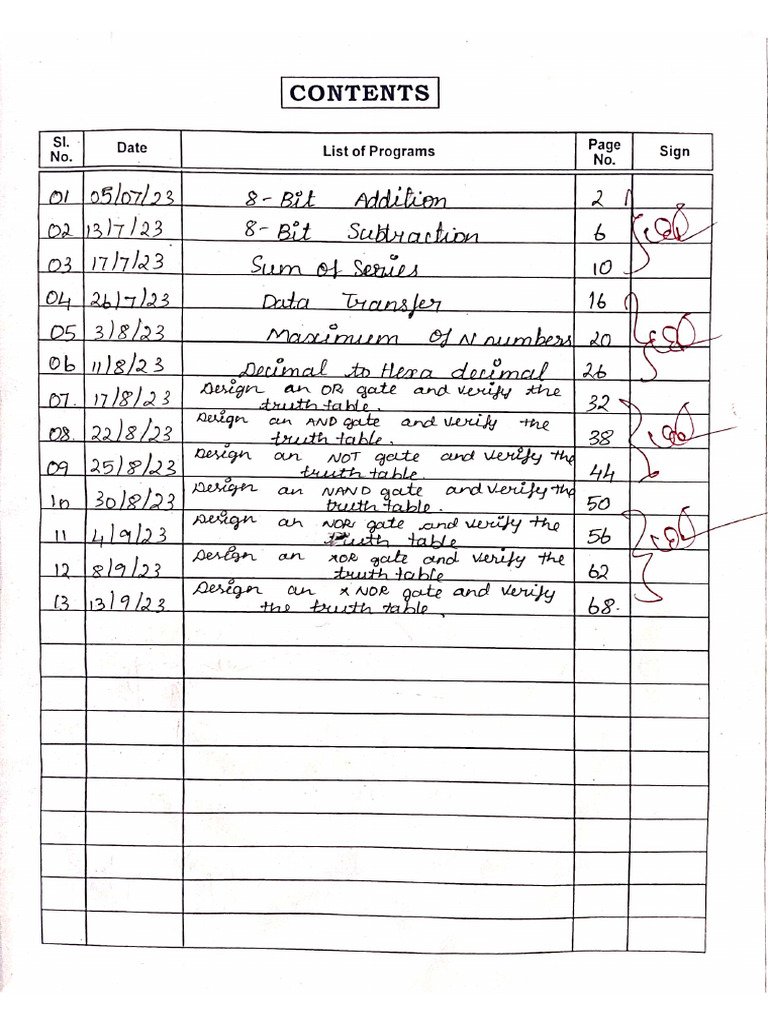 CONTENTS
Sl. No. Date List of Programs Page No. Sign
01 05/07/23 8-Bit Addition 2
02 13/7/23 8-Bit Subtraction 6
03 17/7/23 Sum of Series 10
04 26/7/23 Data Transfer 16
05 3/8/23 Maximum of N numbers 20
06 11/8/23 Decimal to Hexa decimal 26
07. 17/8/23 Design an OR gate and verify the
truth table. 32
08. 22/8/23 Design an AND gate and verify the
truth table. 38
09 25/8/23 Design an NOT gate and verify the
truth table. 44
10 30/8/23 Design an NAND gate and verify the
truth table. 50
11 4/9/23 Design an NOR gate and verify the
truth table 56
12 8/9/23 Design an XOR gate and verify the
truth table 62
13 13/9/23 Design an X NOR gate and verify
the truth table. 68.